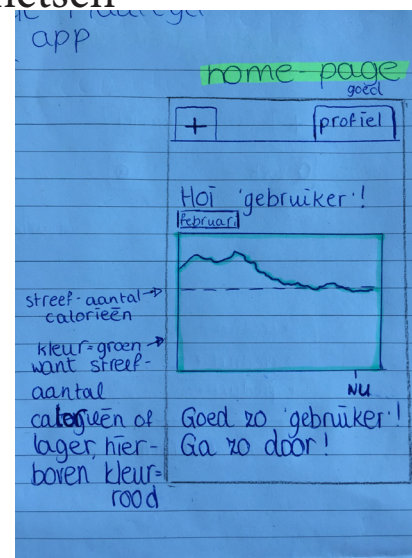 app
home-page
goed
+
profiel
Hoi 'gebruiker'!
februari
streef-aantal
calorieën
kleur=groen
want streef-
aantal
calorieën of
lager, hier-
boven kleur=
rood
NU
Goed zo 'gebruiker'!
Ga zo door!